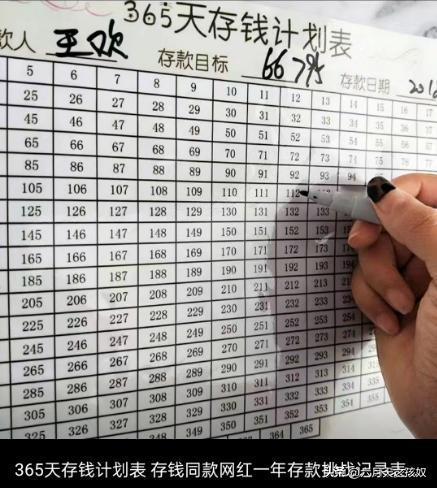 365天存钱计划表
款人 王欢 存款目标 66795 存款日期 201
5 6 7 8 9 10 11 12 13 14 15 16 17
25 26 27 28 29 30 31 32 33 34 35 36 37
45 46 47 48 49 50 51 52 53 54 55 56 57
65 66 67 68 69 70 71 72 73 74 75 76 77
85 86 87 88 89 90 91 92 93 94
105 106 107 108 109 110 111 112
125 126 127 128 129 130 131 132 133
145 146 147 148 149 150 151 152 153
165 166 167 168 169 170 171 172 173 174
185 186 187 188 189 190 191 192 193 194
205 206 207 208 209 210 211 212 213 214
225 226 227 228 229 230 231 232 233 234
245 246 247 248 249 250 251 252 253 254
265 266 267 268 269 270 271 272 273 274
285 286 287 288 289 290 291 292 293 294
305 306 307 308 309 310 311 312 313 314
325 326 327 328 329 330 331 332 333 334 335
348 349 350 351 352 353 354 355
364 365
365天存钱计划表 存钱同款网红一年存款挑战记录表